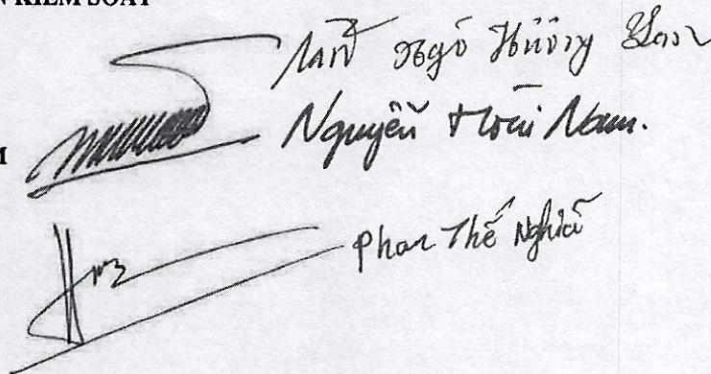 KIỂM SOÁT
Ngô Hương
Nguyễn Hoài Nam.
Phan Thế Nghĩa